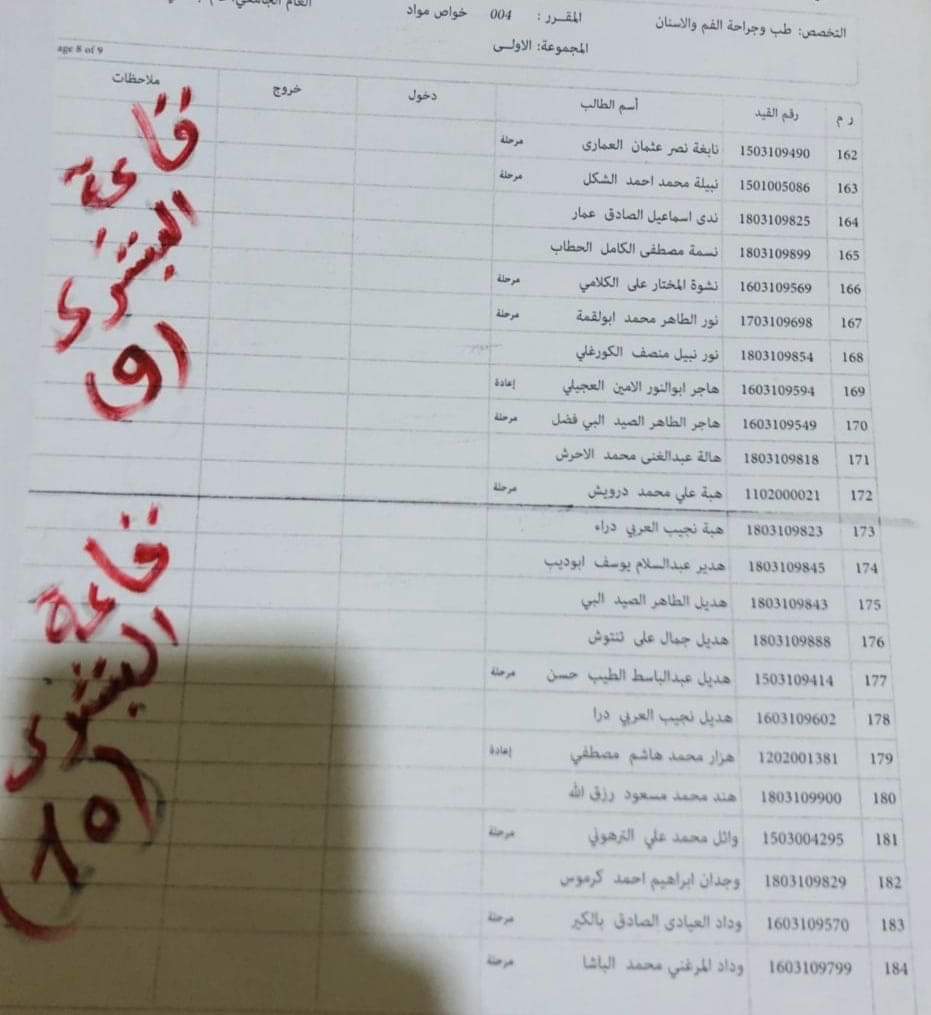 التخصص: طب وجراحة الفم والاسنان المقـرر : 004 خواص مواد
المجموعة: الاولـى
age 8 of 9
ر م رقم القيد أسم الطالب دخول خروج ملاحظات
162 1503109490 نابغة نصر عثمان العمارى مرحلة
163 1501005086 نبيلة محمد احمد الشكل مرحلة
164 1803109825 ندى اسماعيل الصادق عمار
165 1803109899 نسمة مصطفى الكامل الحطاب
166 1603109569 نشوة المختار على الكلامي مرحلة
167 1703109698 نور الطاهر محمد ابولقمة مرحلة
168 1803109854 نور نبيل منصف الكورغلي
169 1603109594 هاجر ابوالنور الامين العجيلي إعادة
170 1603109549 هاجر الطاهر الصيد البي فضل مرحلة
171 1803109818 هالة عبدالغنى محمد الاحرش
172 1102000021 هبة علي محمد درويش مرحلة
173 1803109823 هبة نجيب العربي دراء
174 1803109845 هدير عبدالسلام يوسف ابوديب
175 1803109843 هديل الطاهر الصيد البي
176 1803109888 هديل جمال على تنتوش
177 1503109414 هديل عبدالباسط الطيب حسن مرحلة
178 1603109602 هديل نجيب العربي درا
179 1202001381 هزار محمد هاشم مصطفي إعادة
180 1803109900 هند محمد مسعود رزق الله
181 1503004295 وائل محمد علي الترهوني مرحلة
182 1803109829 وجدان ابراهيم احمد كرموس
183 1603109570 وداد العيادى الصادق بالكير مرحلة
184 1603109799 وداد المرغني محمد الباشا مرحلة